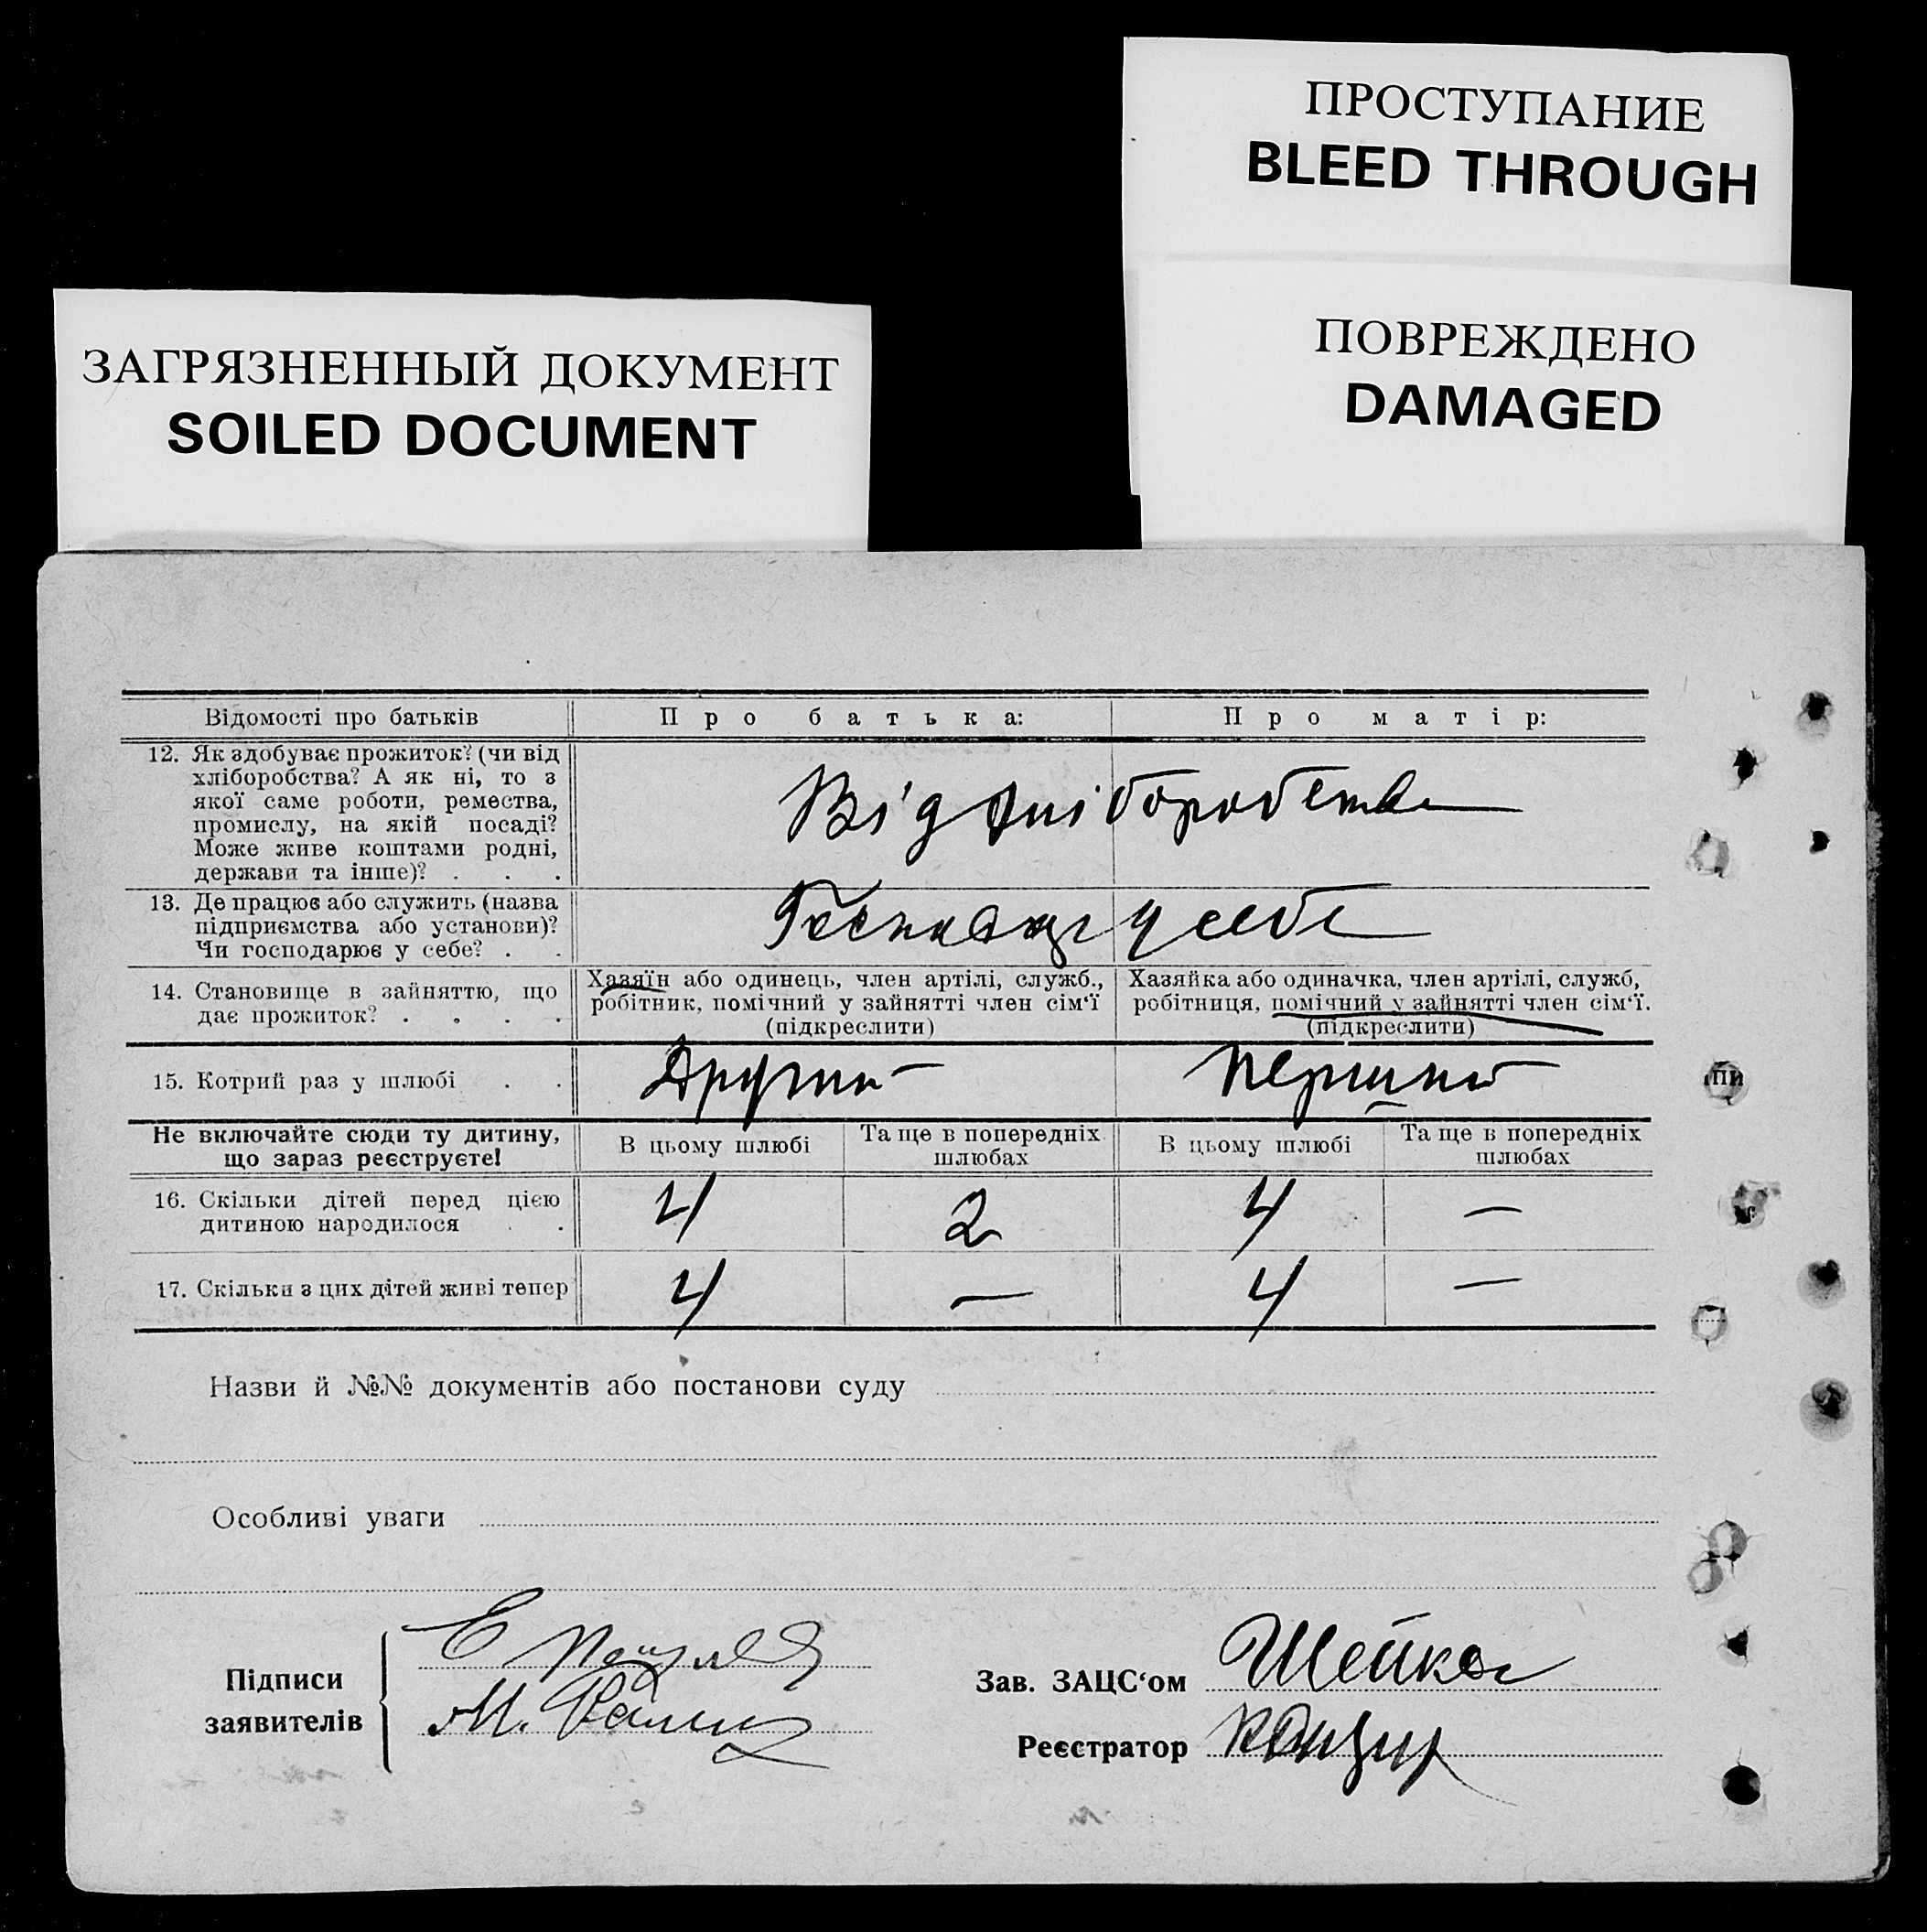 ПРОСТУПАНИЕ
BLEED THROUGH
ПОВРЕЖДЕНО
DAMAGED
ЗАГРЯЗНЕННЫЙ ДОКУМЕНТ
SOILED DOCUMENT
Відомості про батьків Про батька: Про матір:
12. Як здобуває прожиток? (чи від
хліборобства? А як ні, то з
якої саме роботи, ремества,
промислу, на якій посаді?
Може живе коштами родні,
держави та інше)? . . .
Від хліборобства
13. Де працює або служить (назва
підприємства або установи)?
Чи господарює у себе? . .
у себе
14. Становище в зайняттю, що
дає прожиток? . . . .
Хазяїн або одинець, член артілі, служб.,
робітник, помічний у зайнятті член сім‘ї
(підкреслити)
Хазяйка або одиначка, член артілі, служб,
робітниця, помічний у зайнятті член сім‘ї.
(підкреслити)
15. Котрий раз у шлюбі . . Другий Перший
Не включайте сюди ту дитину,
що зараз реєструєте!
В цьому шлюбі
Та ще в попередніх
шлюбах
В цьому шлюбі
Та ще в попередніх
шлюбах
16. Скільки дітей перед цією
дитиною народилося . .
4 2 4 —
17. Скільки з цих дітей живі тепер 4 — 4 —
Назви й №№ документів або постанови суду
Особливі уваги
Підписи
заявителів
Е
М.
Зав. ЗАЦС‘ом Шейко
Реєстратор